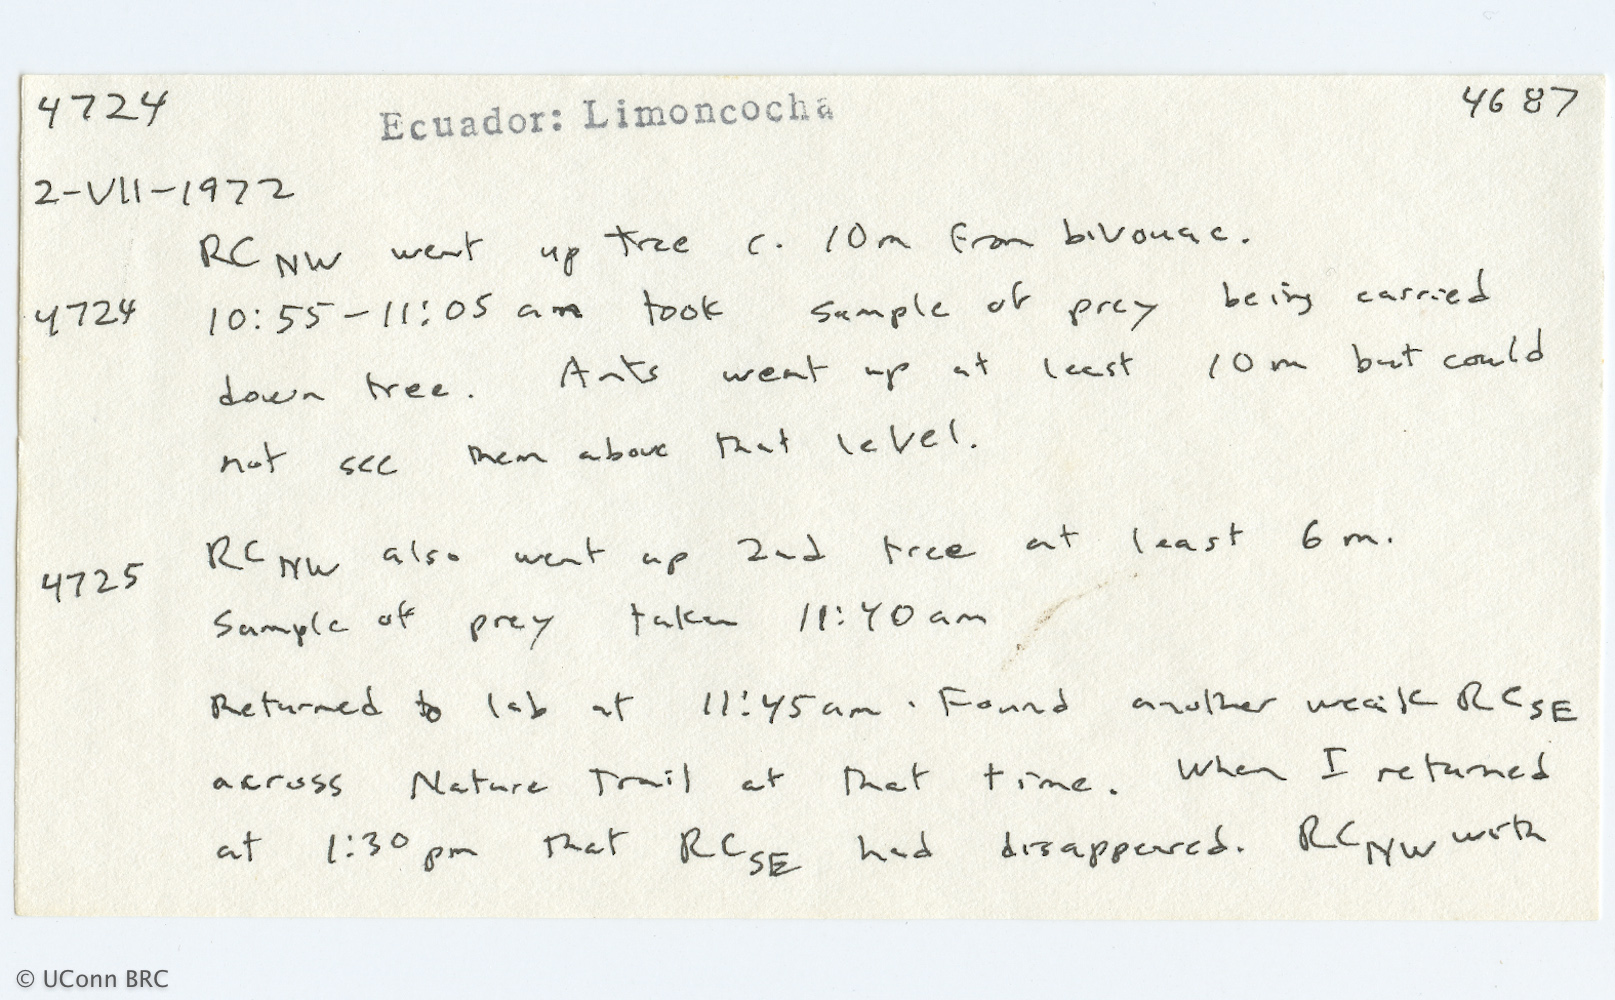 4724 Ecuador: Limoncocha 4687
2-VII-1972
RC NW went up tree c. 10m from bivouac.
4724 10:55-11:05 am took sample of prey being carried
down tree. Ants went up at least 10m but could
not see them above that level.
RC NW also went up 2nd tree at least 6 m.
4725
Sample of prey taken 11:40 am
Returned to lab at 11:45 am. Found another weak RC SE
across Nature Trail at that time. When I returned
at 1:30 pm that RC SE had disappeared. RC NW with
© UConn BRC